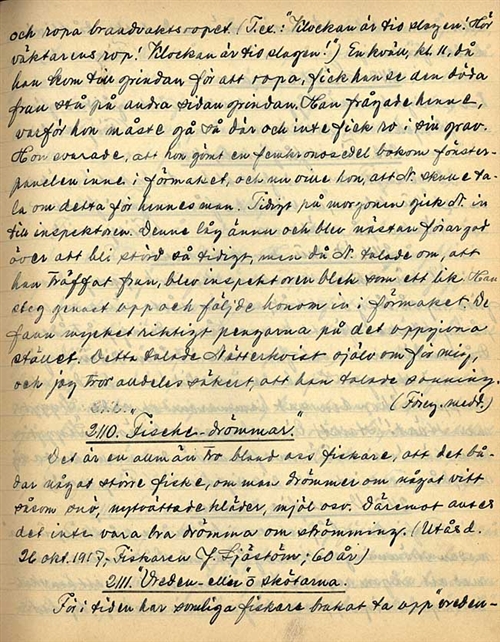 och ropa brandvaktsropet. (T.ex.: "Klockan är tio slagen! Hör
väktarens rop! Klockan är tio slagen!") En kväll, kl. 11, då
han kom till grindan för att ropa, fick han se den döda
frun stå på andra sidan grindan. Han frågade henne,
varför hon måste gå så där och inte fick ro i sin grav.
Hon svarade, att hon gömt en femkronosedel bakom fönster-
panelen inne i förmaket, och nu ville hon, att N. skulle ta-
la om detta för hennes man. Tidigt på morgonen gick N. in
till inspektoren. Denne låg ännu och blev nästan förargad
över att bli störd så tidigt, men då N. talade om, att
han träffat frun, blev inspektoren blek som ett lik. Han
steg genast opp och följde honom in i förmaket. De
fann mycket riktigt pengarna på det uppgivna
stället. Detta talade Nätterkvist själv om för mig,
och jag tror alldeles säkert, att han talade sanning.
(Föreg. medd.)
2110. "Fische-drömmar."
Det är en allmän tro bland oss fiskare, att det bå-
dar något större fiske, om man drömmer om något vitt
såsom snö, nytvättade kläder, mjöl osv. Däremot anses
det inte vara bra drömma om strömming. (Utård.
26 okt. 1917. Fiskaren J. Sjöström, 60 år)
2111. "Vreden-eller" ö skötarna.
För i tiden har somliga fiskare brukat ta opp "vreden-